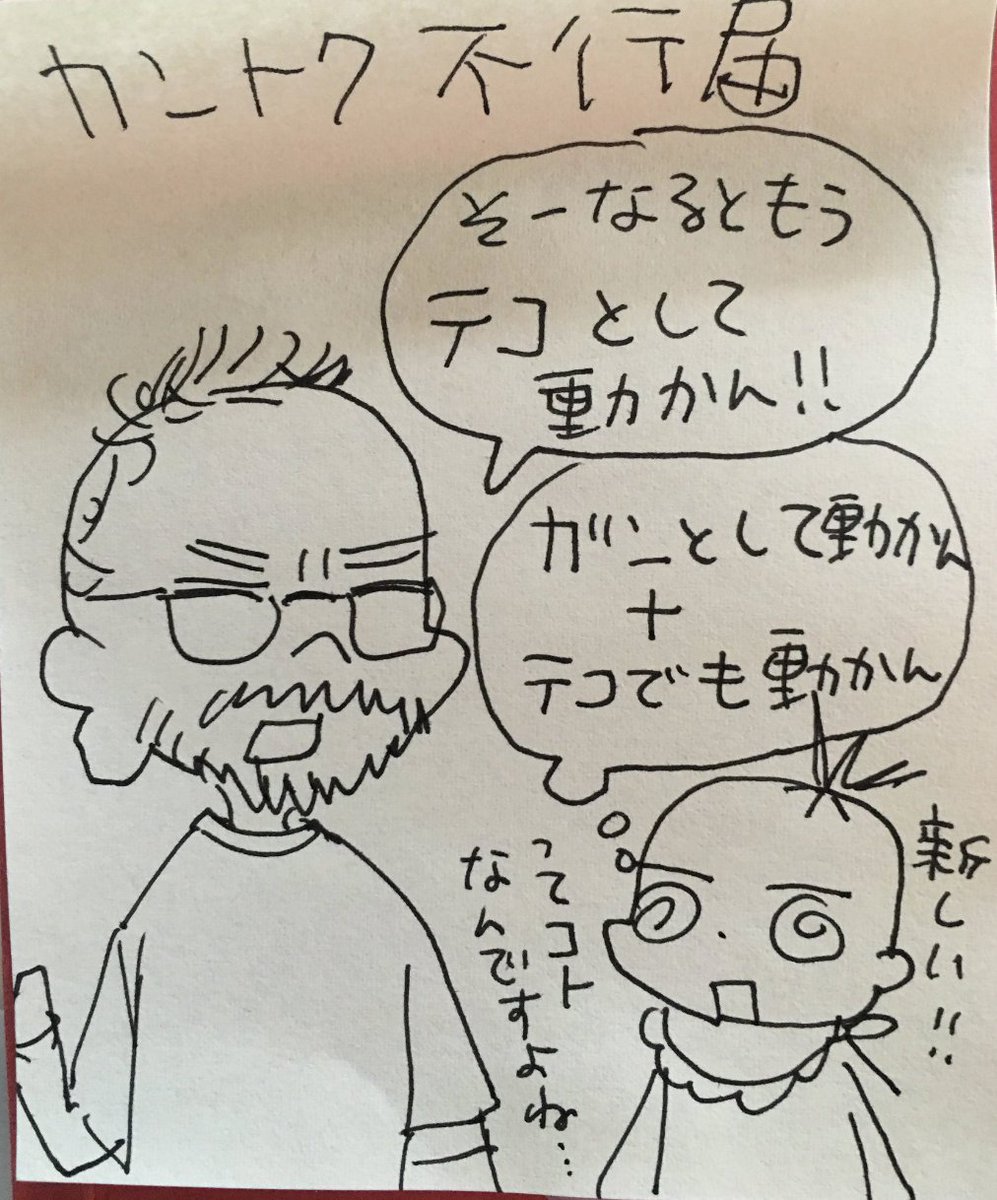 カントク不行届
そーなるともう
テコとして
動かん!!
ガンとして動かん
+
テコでも動かん
ってコト
なんですよね…
新しい!!